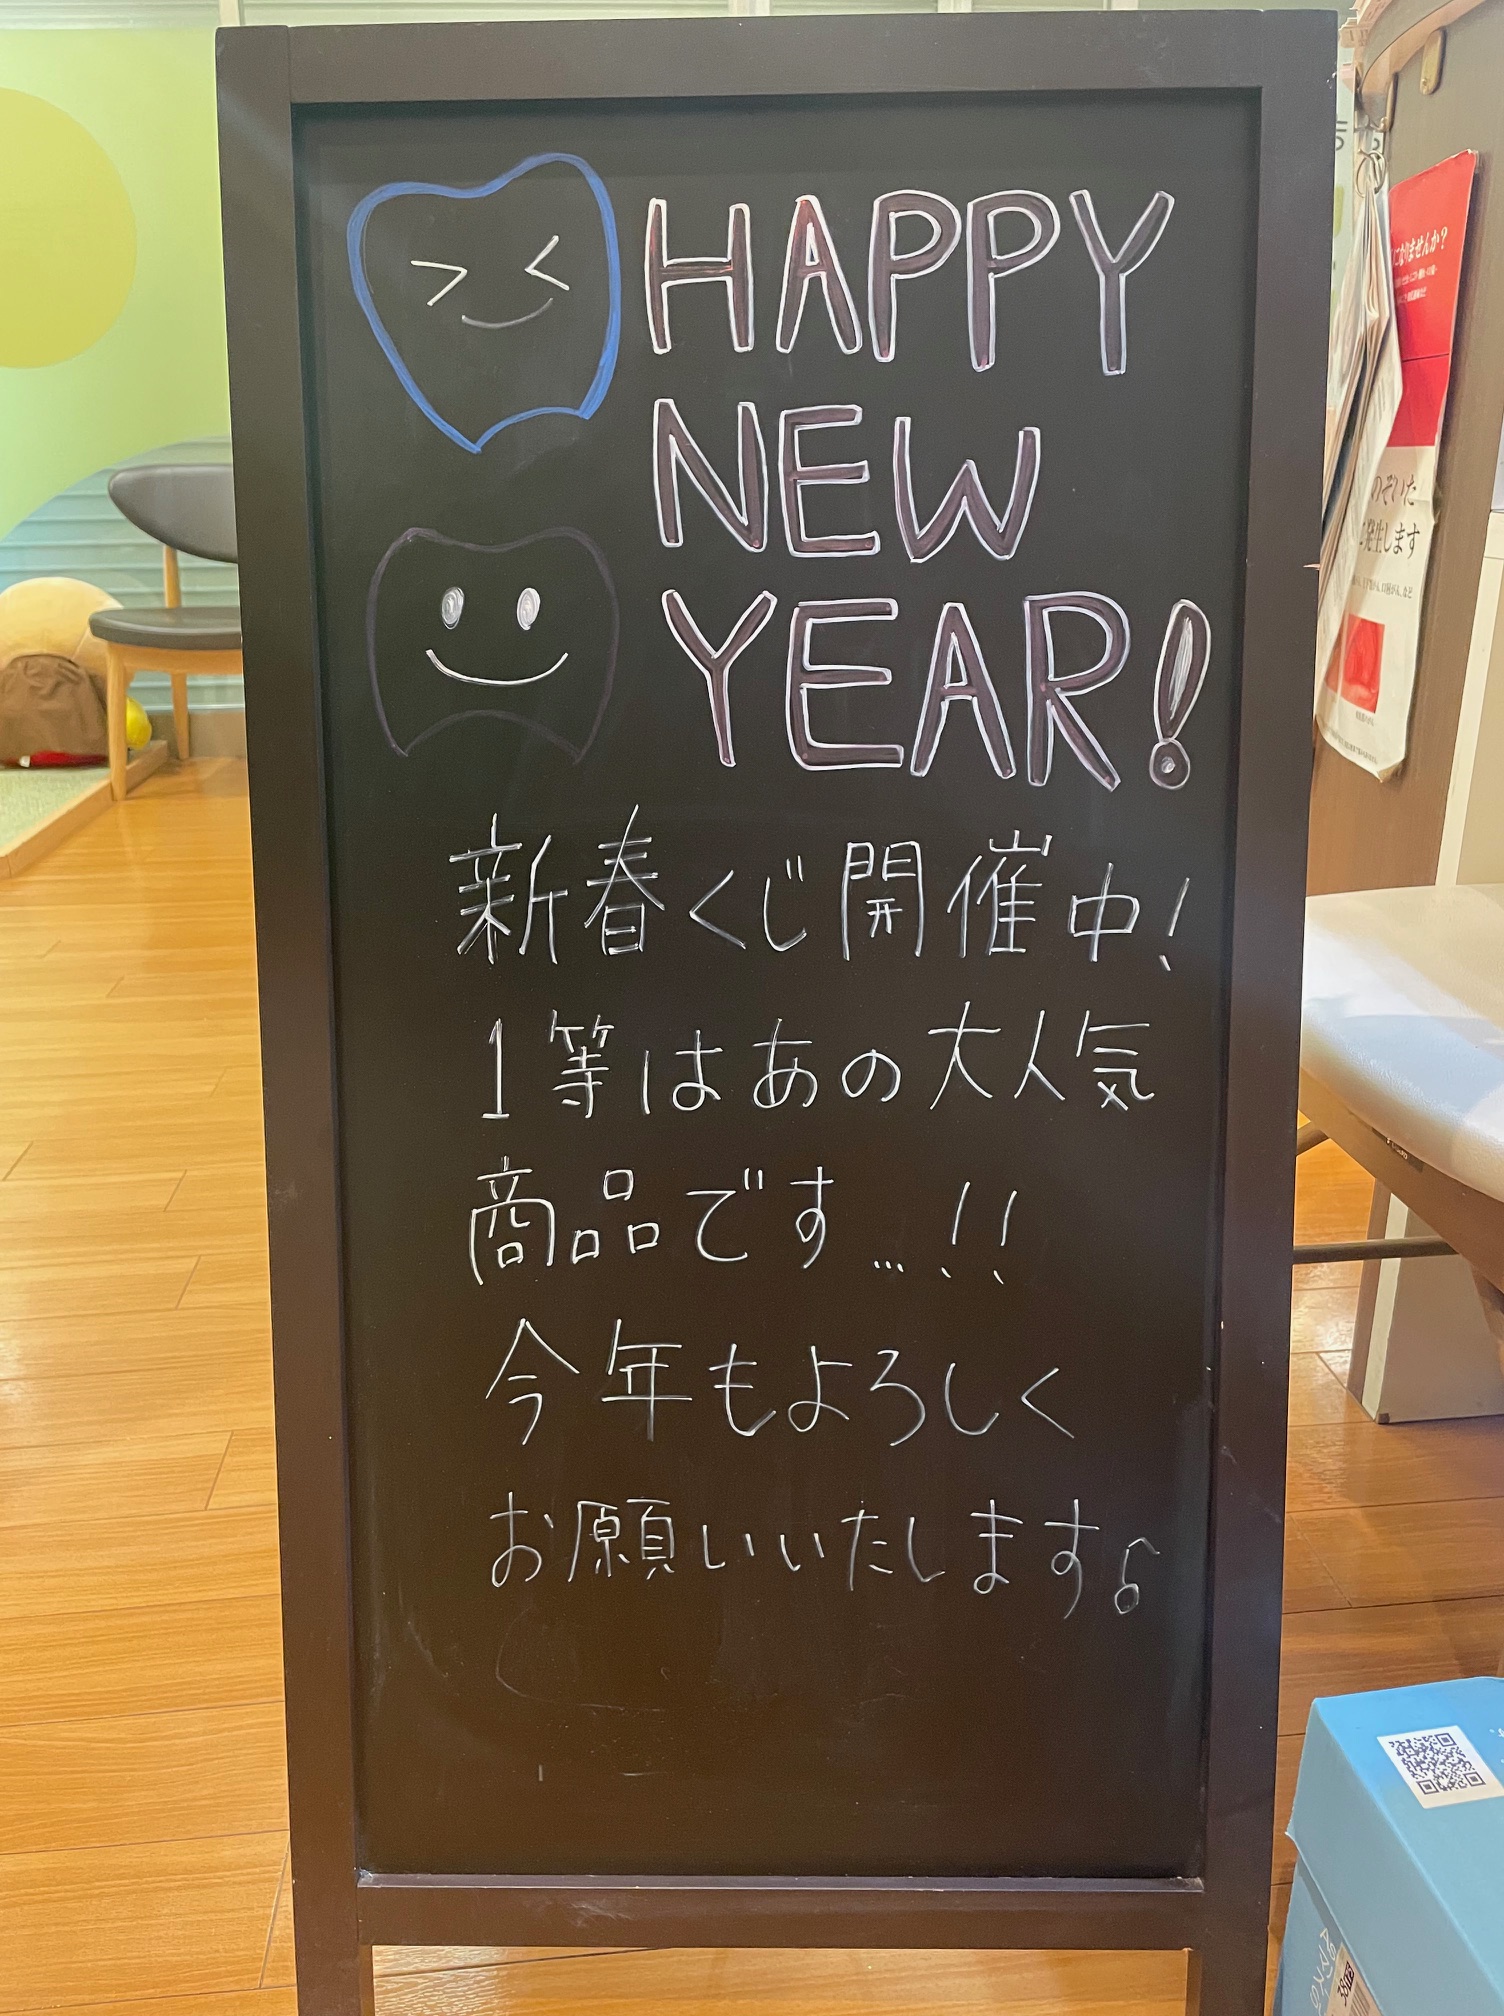 HAPPY
NEW
YEAR!
新春くじ開催中!
1等はあの大人気
商品です…!!
今年もよろしく
お願いいたします♪
になりませんか?
のぞいた
発生します